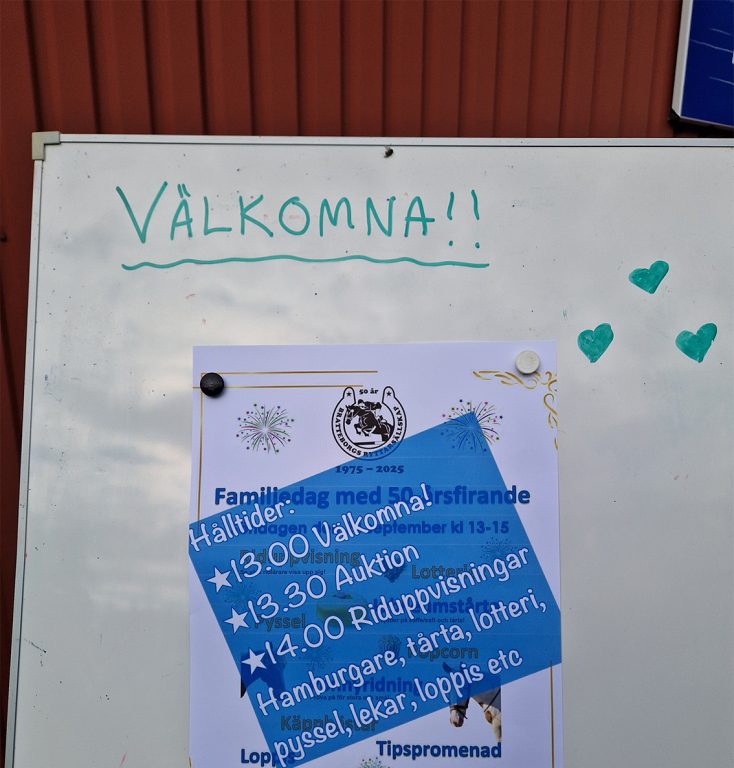 VÄLKOMNA!!
50 år
BRATTEBORGS RYTTARSÄLLSKAP
1975 – 2025
Familjedag med 50 årsfirande
september kl 13-15
Hålltider:
★13.00 Välkomna!
★13.30 Auktion
★14.00 Riduppvisningar
Hamburgare, tårta, lotteri,
pyssel, lekar, loppis etc
Riduppvisning
Lotteri
Pyssel
Popcorn
Tipspromenad